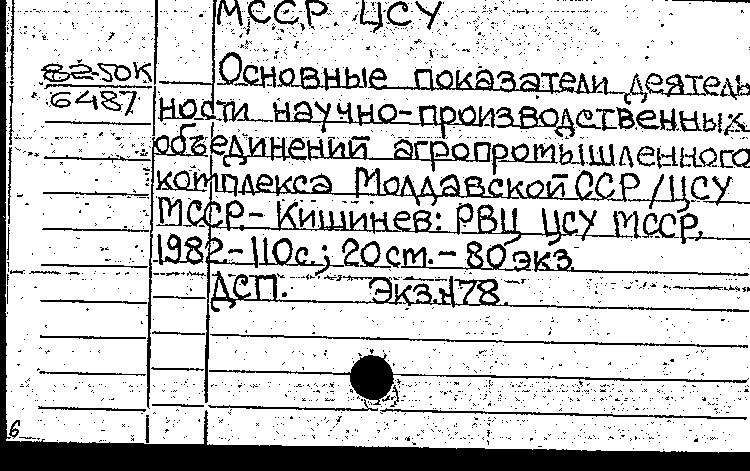 МССР. ЦСУ.
8250К
6487
Основные показатели деятель
ности научно-производственных
объединений агропромышленного
комплекса Молдавской ССР/ЦСУ
МССР.- Кишинев: РВЦ ЦСУ МССР,
1982-110с.; 20ст.- 80экз
ДСП. Экз.№78.
6